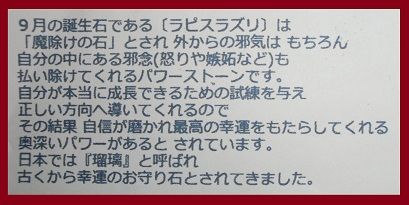 ９月の誕生石である〔ラピスラズリ〕は
「魔除けの石」とされ 外からの邪気は もちろん
自分の中にある邪念(怒りや嫉妬など)も
払い除けてくれるパワーストーンです。
自分が本当に成長できるための試練を与え
正しい方向へ導いてくれるので
その結果 自信が磨かれ最高の幸運をもたらしてくれる
奥深いパワーがあると されています。
日本では『瑠璃』と呼ばれ
古くから幸運のお守り石とされてきました。